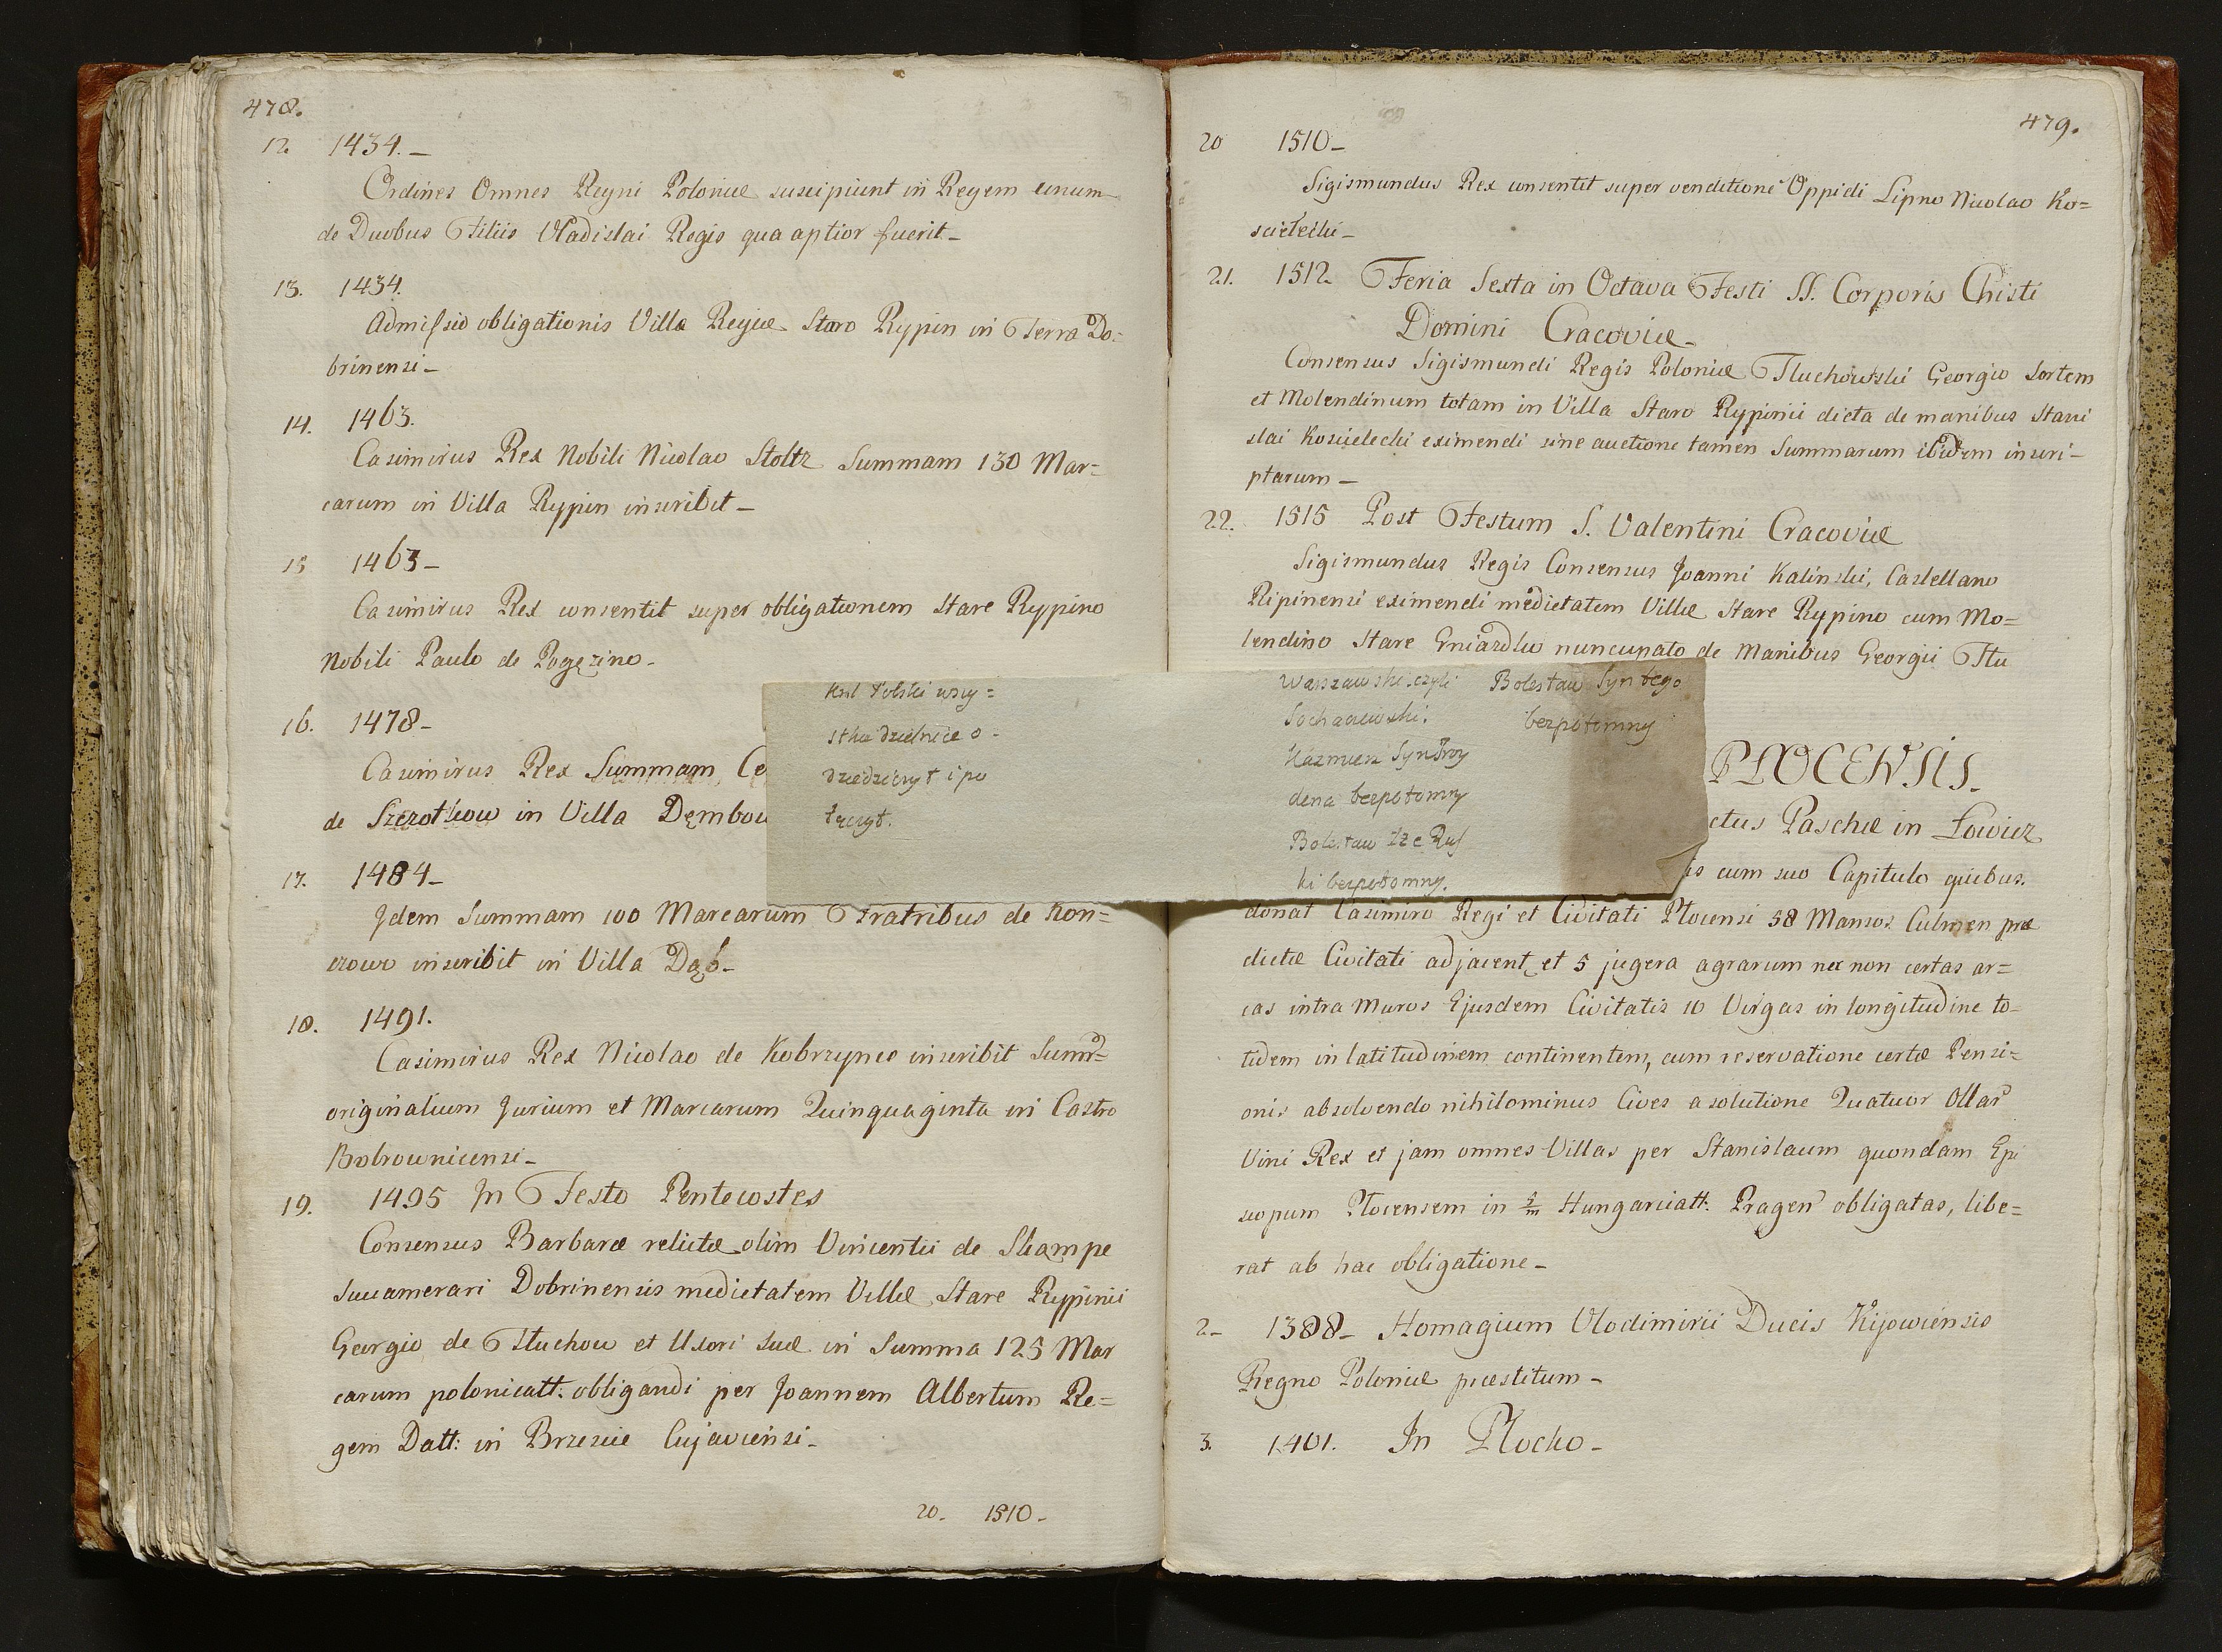 478.
12. 1434.—
Ordines Omnes Regni Poloniæ suscipiunt in Regem unum
de Duobus Filiis Vladislai Regis qua aptior fuerit—
13. 1434.
Admissio obligationis Villa Regiæ Staro Rypin in Terra Do=
brinensi—
14. 1463.
Casimirus Rex Nobili Nicolao Stoltz Summam 130 Mar=
carum in Villa Rypin inscribit—
15 1463—
Casimirus Rex consentit super obligationem Stare Rypino
Nobili Paulo de
16. 1478—
Casimirus Rex Summam Ce
de Szczotkow in Villa Dembow
17. 1484—
Idem Summam 100 Marcarum Fratribus de Kon=
czowo inscribit in Villa Dąb—
18. 1491.
Casimirus Rex Nicolao de Kobrzynco inscribit Sum̃=
originalium Jurium et Marcarum Quinquaginta in Castro
Bobrownicensi—
19. 1495 In Festo Pentecostes
Consensus Barbaræ relictæ olim Vincentii de Skąmpe
Succamerari Dobrinensis medietatem Villæ Stare Rypinii
Georgio de Tłuchow et Uxori suæ in Summa 125 Mar
carum polonicatt: obligandi per Joannem Albertum Re=
gem Datt: in Brzescie Cujaviensi—
20. 1510—
Krol Polski wszy=
stkie dzielnice o-
dziedziczył i po
łączył.
Warszawski czyli
Sochaczewski.
Kazmierz Syn Troy
dena bezpotomny
Bolesław 2 Ruſ
ki bezpotomny.
Bolesław Syn tego
bezpotomny
479.
20 1510—
Sigismundus Rex consentit super venditione Oppidi Lipno Nicolao Ko=
scielecki—
21. 1512. Feria Sexta in Octava Festi SS. Corporis Christi
Domini Cracoviæ—
Consensus Sigismundi Regis Poloniæ Tluchowski Georgio sortem
et Molendinum totam in Villa Staro Rypinii dicta de manibus Stani
slai Koscielecki eximendi sine auctione tamen Summarum ibidem inscri-
ptarum—
22. 1515 Post Festum S. Valentini Cracoviæ
Sigismundus Regis Consensus Joanni Kalinski, Castellano
Ripinensi eximendi medietatem Villæ Stare Rypino cum Mo=
lendino Stare Gniazdko nuncupato de Manibus Georgii Tłu
PŁOCENSIS.
ctus Paschæ in Łowicz
is cum suo Capitulo quibus.
donat Casimiro Regi et Civitati Plocensi 58 Mansos Culmen præ
dictæ Civitati adjacent, et 5 jugera agrarum nec non certas ar=
cas intra Muros Ejusdem Civitatis 10 Virgas in longitudine to-
tidem in latitudinem continentem, cum reservatione certæ Pensi=
onis absolvendo nihilominus Cives a solutione Quatuor Ollar̃
Vini Rex et jam omnes Villas per Stanislaum quondam Epi
scopum Plocensem in Hungaricatt. Pragen̄ obligatas, libe=
rat ab hac obligatione—
2— 1388— Homagium Vlodimirii Ducis Kijowiensis
Regno Poloniæ præstitum—
3. 1401. In Płocko—